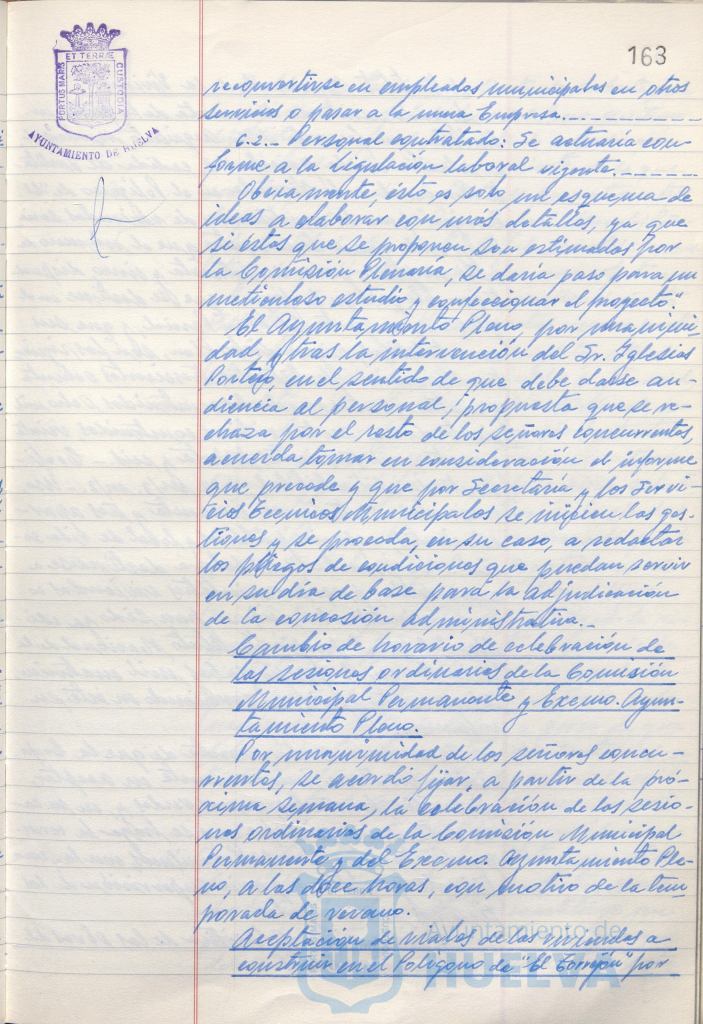 163
PORTUS MARIS ET TERRÆ CUSTODIA
AYUNTAMIENTO DE HUELVA
reconvertirse en empleados municipales en otros
servicios o pasar a la nueva Empresa.
C.2.- Personal contratado: Se actuaría con-
forme a la Legislación laboral vigente.
Obviamente, ésto es solo un esquema de
ideas a elaborar con más detalles, ya que
si éstas que se proponen son estimadas por
la Comisión Plenaria, se daría paso para un
meticuloso estudio y confeccionar el proyecto".
El Ayuntamiento Pleno, por unanimi-
dad, y tras la intervención del Sr. Iglesias
Portela, en el sentido de que debe darse au-
diencia al personal, propuesta que se re-
chaza por el resto de los señores concurrentes,
acuerda tomar en consideración el informe
que precede y que por Secretaría y los Servi-
cios Técnicos Municipales se inicien las ges-
tiones y se proceda, en su caso, a redactar
los pliegos de condiciones que puedan servir
en su día de base para la adjudicación
de la concesión administrativa.-
Cambio de horario de celebración de
las sesiones ordinarias de la Comisión
Municipal Permanente y Excmo. Ayun-
tamiento Pleno.
Por unanimidad de los señores concu-
rrentes, se acordó fijar, a partir de la pró-
xima semana, la celebración de las sesio-
nes ordinarias de la Comisión Municipal
Permanente y del Excmo. Ayuntamiento Ple-
no, a las doce horas, con motivo de la tem-
porada de verano.
Aceptación de viales de las viviendas a
construir en el Polígono de "El Torrejón" por
Ayuntamiento de
HUELVA